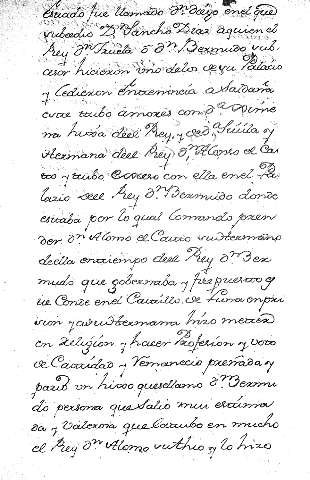 estado fue llamado Dn Diego en el que
subcedio Dn Sancho Diaz a quien el
Rey Dn Fruela o Dn Bermudo sub-
cesor hicieron uno de los de su Palacio
y Cedieron en tenencia a Saldaña
este tubo amores con Da Xime
na hixa deel Rey, y de Da
y Hermana deel Rey Dn Alonso el Cas
to y tubo con ella en el Pa
lacio deel Rey Dn Bermudo donde
estaba por lo qual lo mando pren
der Dn Alonso el Casto su Hermano
de ella en tiempo deel Rey Dn Ber
mudo que gobernaba y fue puesto es
te Conde en el Castillo de Luna en pri
sion y a su Hermana hizo meter
en Religion y hacer Profesion y voto
de Castidad y remanecio preñada y
pario un hixo que llamo Dn Bermu
do persona que salio mui estima
da y valerosa que estubo en mucho
el Rey Dn Alonso su thio y lo hizo